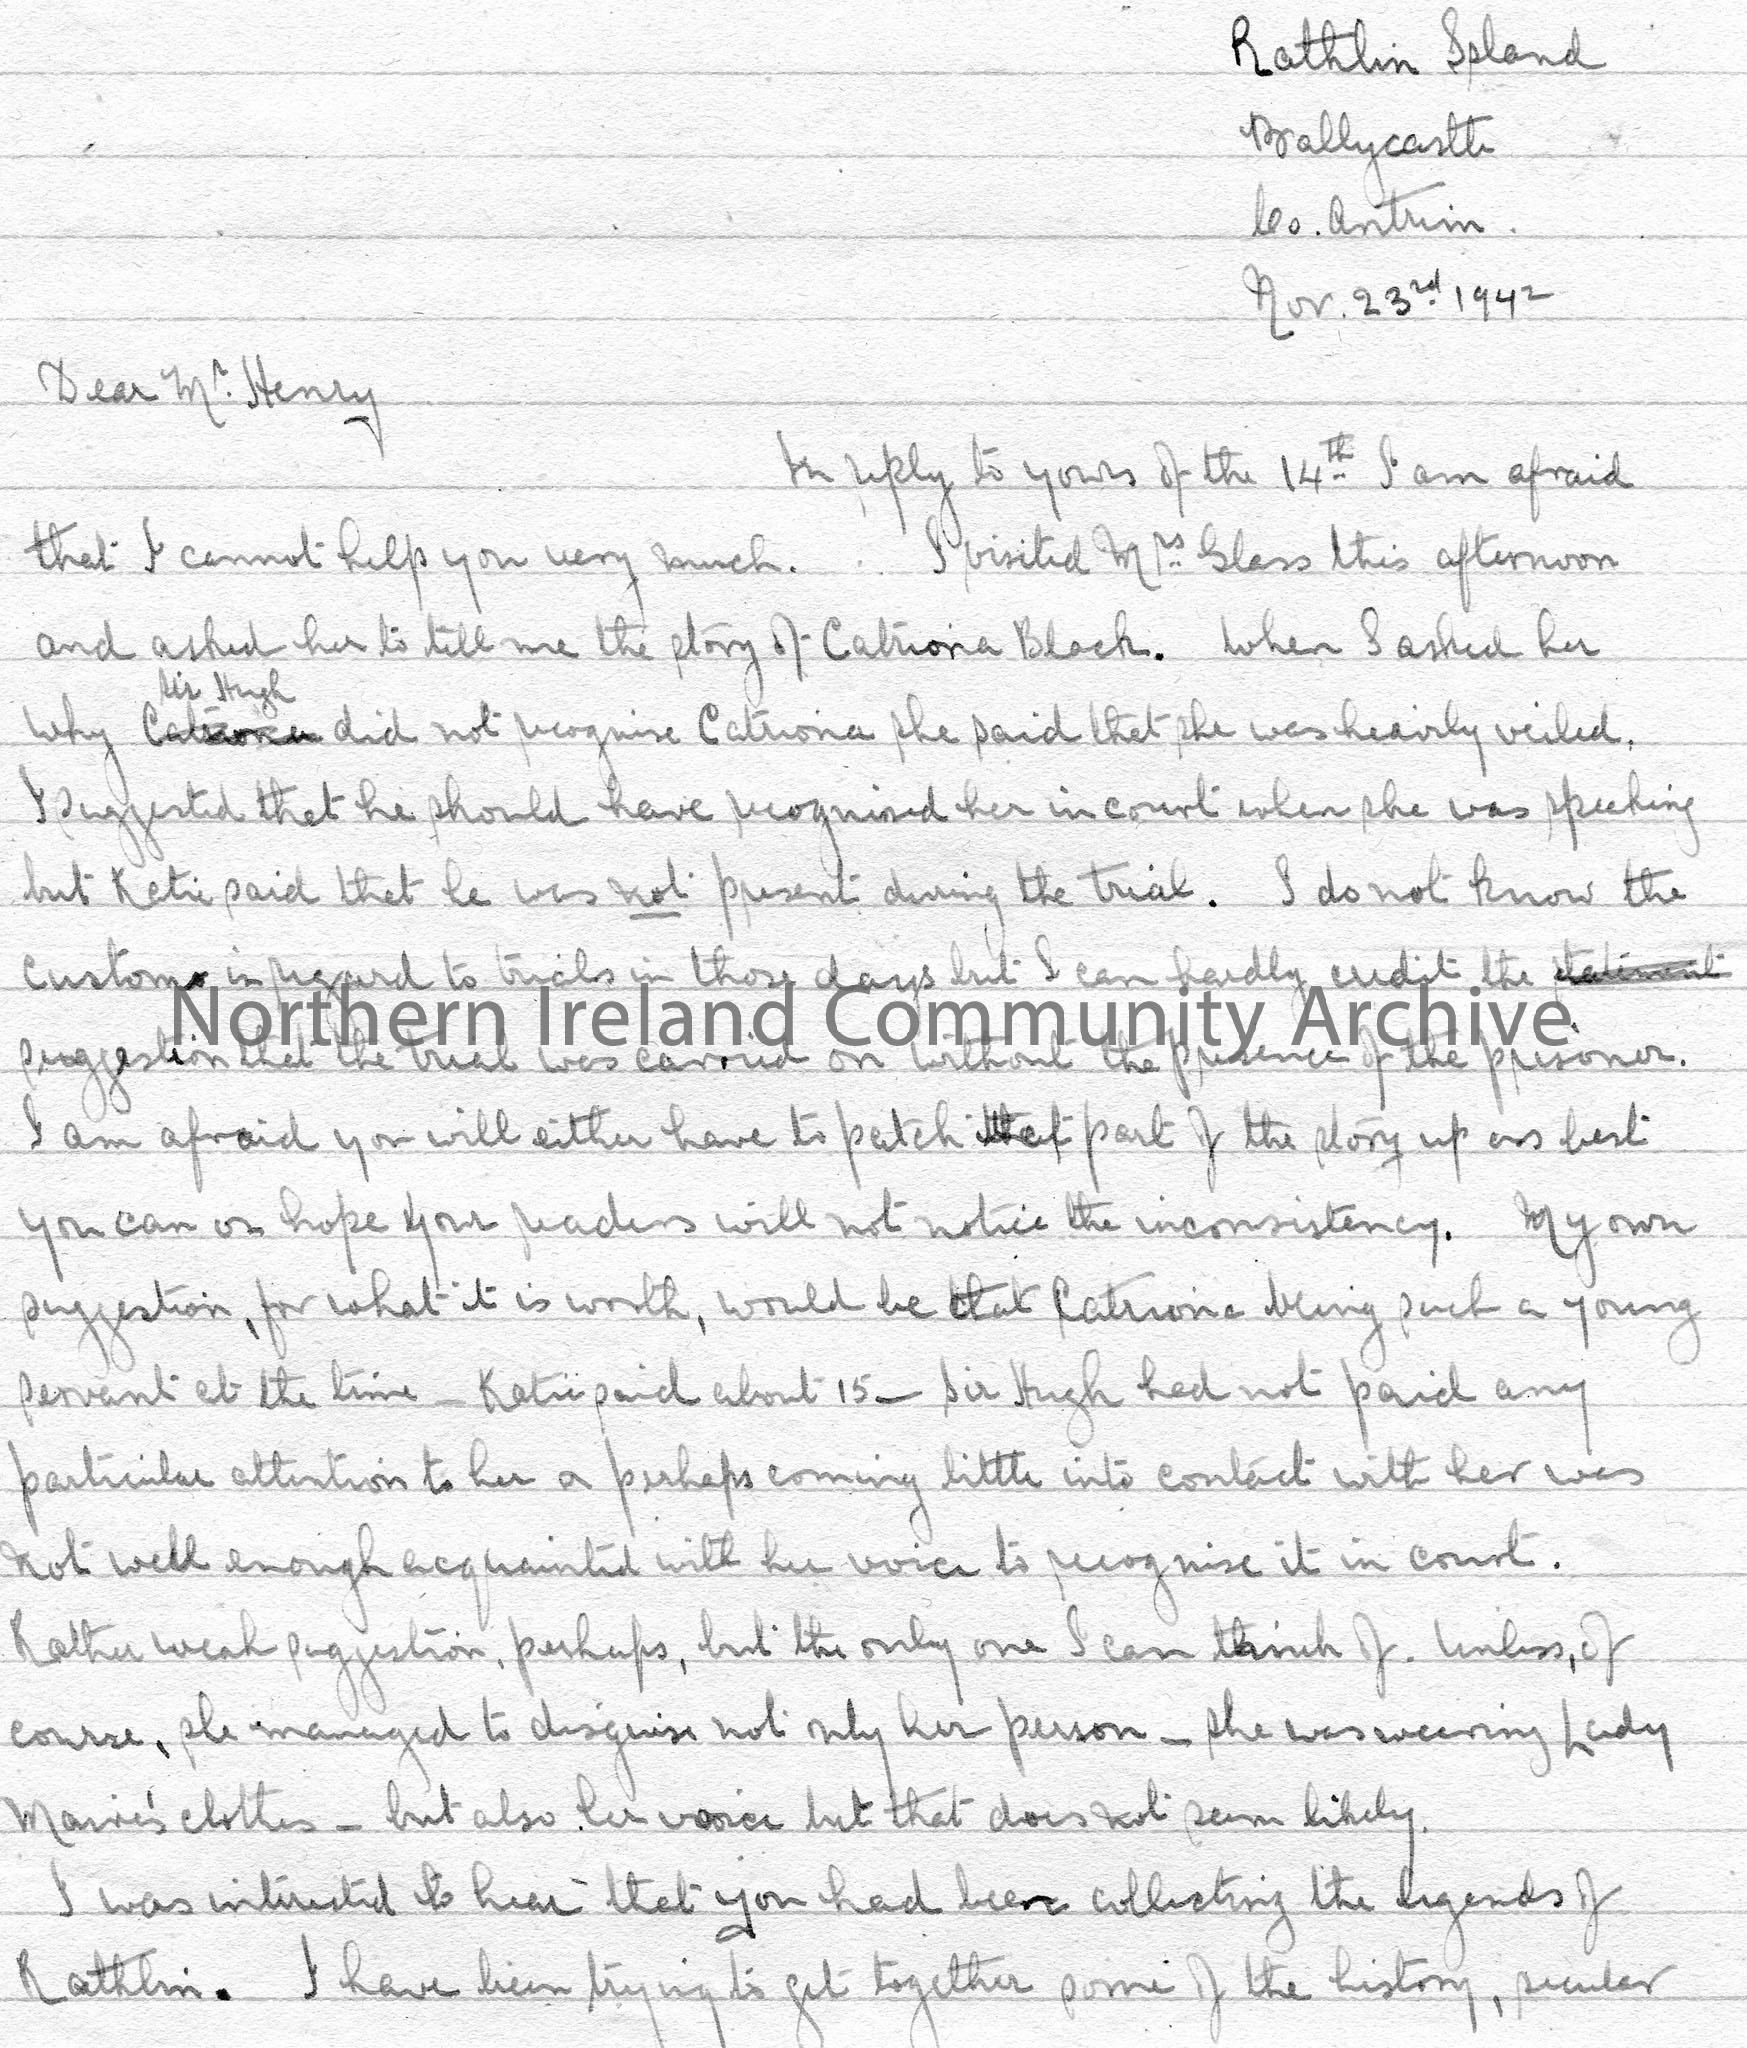 Rathlin Island
Ballycastle
Co. Antrim.
Nov. 23rd 1942
Dear Mr. Henry
In reply to yours of the 14th I am afraid
that I cannot help you very much. I visited Mrs. Glass this afternoon
and asked her to tell me the story of Catriona Black. When I asked her
Sir Hugh
why Catriona did not recognise Catriona she said that she was heavily veiled.
I suggested that he should have recognised her in court when she was speaking
but Katie said that he was not present during the trial. I do not know the
customs in regard to trials in those days but I can hardly credit the statement
Northern Ireland Community Archive
suggestion that the trial was carried on without the presence of the prisoner.
I am afraid you will either have to patch that part of the story up as best
you can or hope your readers will not notice the inconsistency. My own
suggestion, for what it is worth, would be that Catriona being such a young
servant at the time - Katie said about 15 - Sir Hugh had not paid any
particular attention to her or perhaps coming little into contact with her was
not well enough acquainted with her voice to recognise it in court.
Rather weak suggestion, perhaps, but the only one I can think of. Unless, of
course, she managed to disguise not only her person - she was wearing Lady
Maire's clothes - but also her voice but that does not seem likely.
I was interested to hear that you had been collecting the legends of
Rathlin. I have been trying to get together some of the history, secular